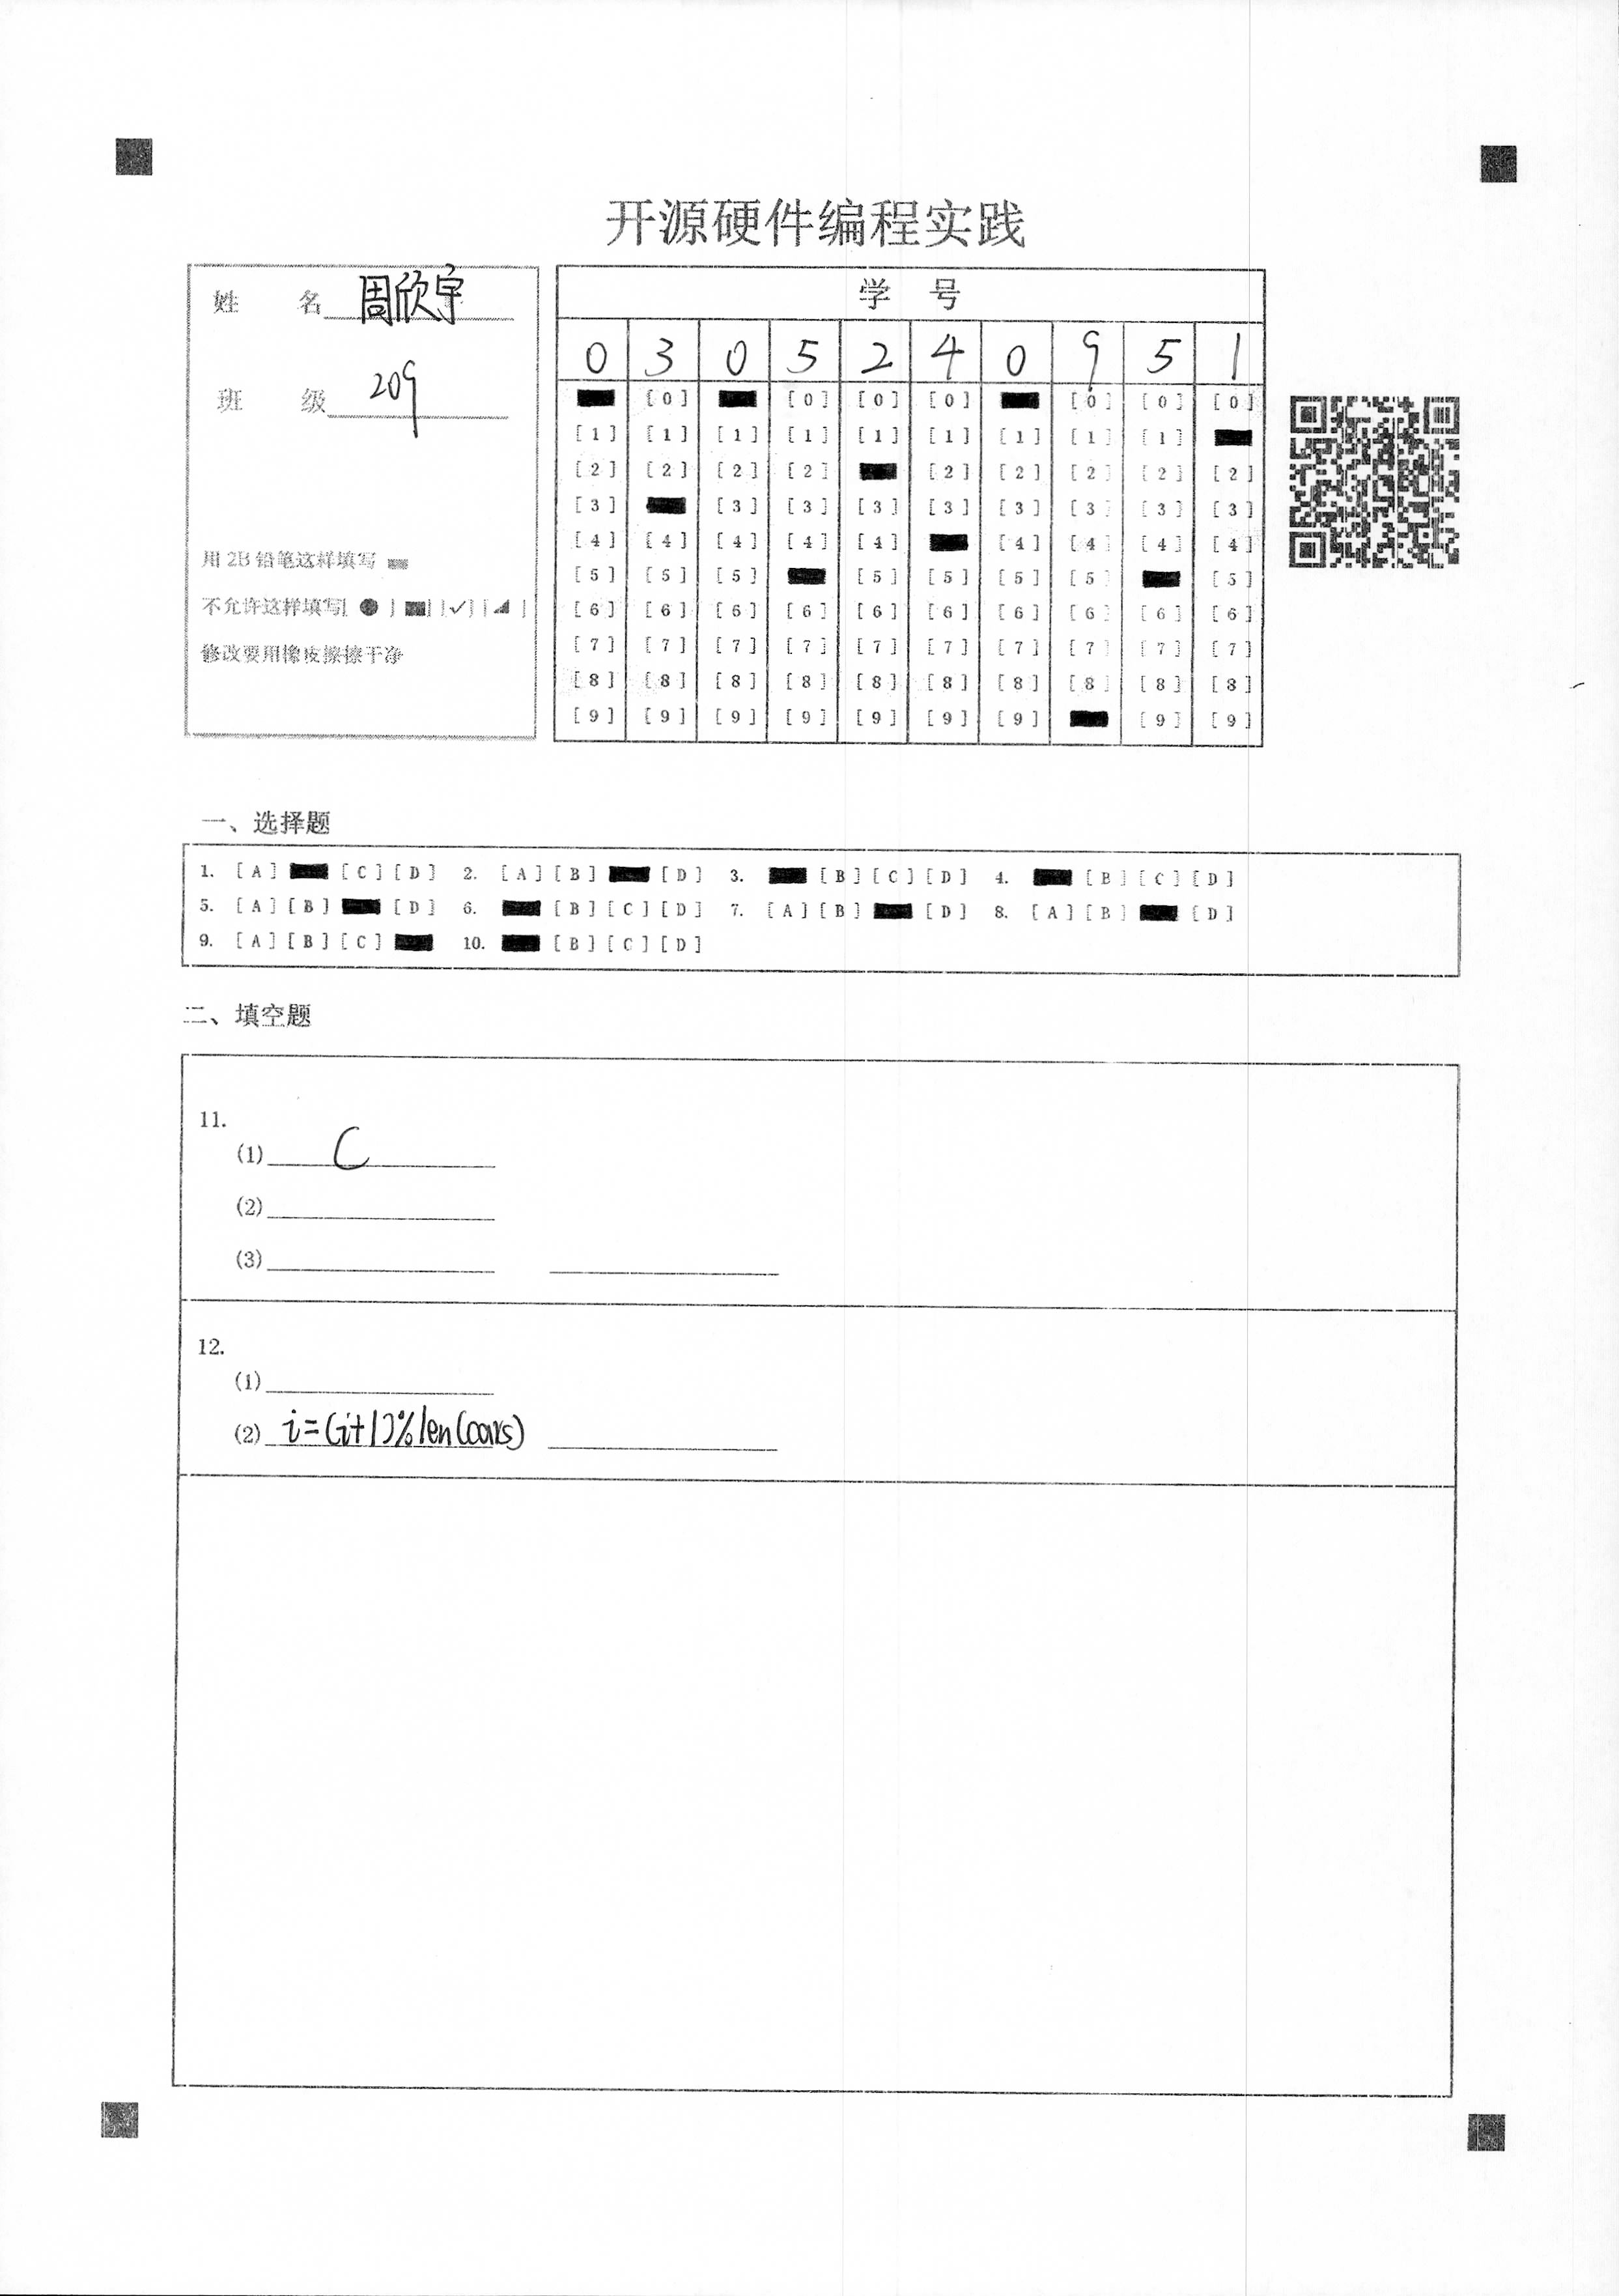 开源硬件编程实践
姓 名 周欣宇
班 级 209
用 2B 铅笔这样填写
不允许这样填写[ ● ] [■] [✓] [◢ ]
修改要用橡皮擦擦干净
学 号
0 3 0 5 2 4 0 9 5 1
[0] [0] [0] [0] [0] [0] [0]
[1] [1] [1] [1] [1] [1] [1] [1] [1]
[2] [2] [2] [2] [2] [2] [2] [2] [2]
[3] [3] [3] [3] [3] [3] [3] [3] [3]
[4] [4] [4] [4] [4] [4] [4] [4] [4]
[5] [5] [5] [5] [5] [5] [5] [5]
[6] [6] [6] [6] [6] [6] [6] [6] [6] [6]
[7] [7] [7] [7] [7] [7] [7] [7] [7] [7]
[8] [8] [8] [8] [8] [8] [8] [8] [8] [8]
[9] [9] [9] [9] [9] [9] [9] [9] [9]
一、选择题
1. [A] [C] [D] 2. [A] [B] [D] 3. [B] [C] [D] 4. [B] [C] [D]
5. [A] [B] [D] 6. [B] [C] [D] 7. [A] [B] [D] 8. [A] [B] [D]
9. [A] [B] [C] 10. [B] [C] [D]
二、填空题
11.
(1) C
(2)
(3)
12.
(1)
(2) i=(i+1)%len(